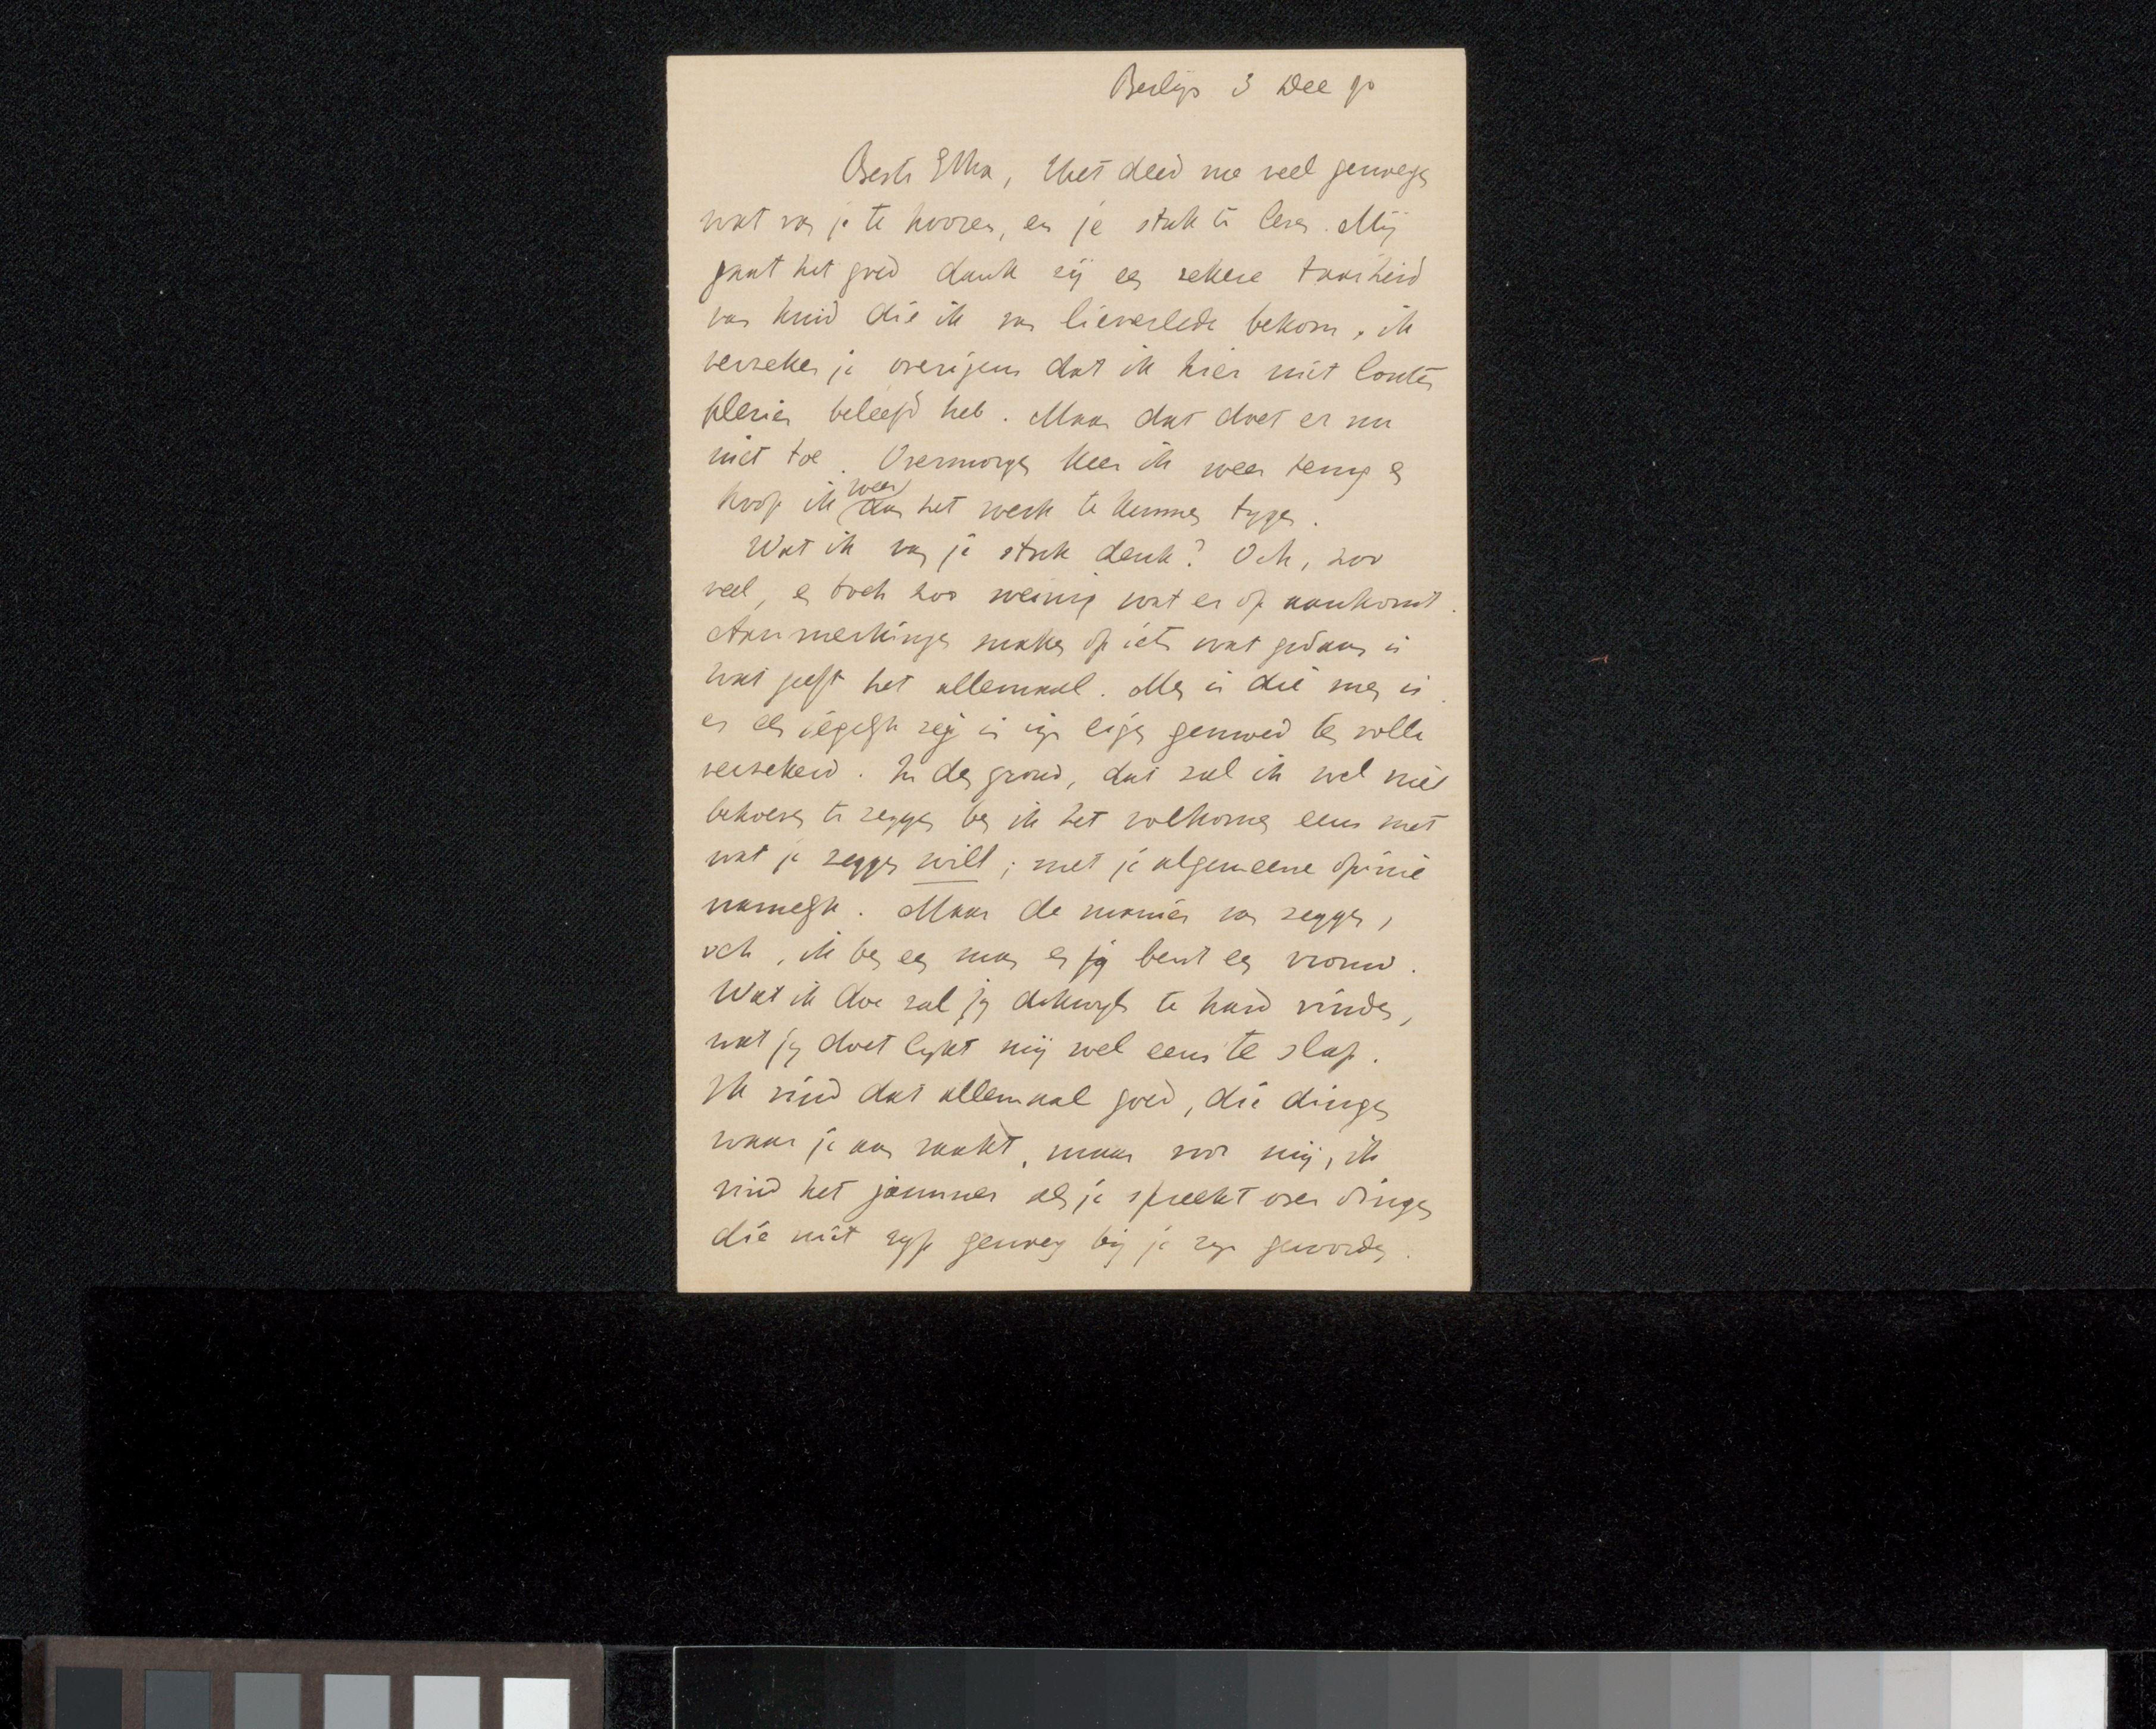 Berlijn 3 Dec 90
Beste Etha, Het deed me veel genoegen
wat van je te hooren, en je stuk te lezen. Mij
gaat het goed dank zij een zekere taaiheid
van huid die ik van lieverlede bekom, ik
verzeker je overigens dat ik hier niet louter
plezier beleefd heb. Maar dat doet er nu
niet toe. Overmorgen keer ik weer terug en
hoop ik weer aan het werk te kunnen tygen.
Wat ik van je stuk denk? Och, zoo
veel, en toch zoo weinig wat er op aankomt.
Aanmerkingen maken op iets wat gedaan is
wat geeft het allemaal. Men is die men is
en een iegelijk zij in zijn eigen gemoed ten volle
verzekerd. In den grond, dat zal ik wel niet
behoeven te zeggen ben ik het volkomen eens met
wat je zeggen wilt; met je algemeene opinie
namelijk. Maar de manier van zeggen,
och, ik ben een man en jij bent een vrouw.
Wat ik doe zal jij dikwijls te hard vinden,
wat jij doet lijkt mij wel eens te slap.
Ik vind dat allemaal goed, die dingen
waar je aan raakt, maar voor mij, ik
vind het jammer als je spreekt over dingen
die niet ryp genoeg bij je zijn geworden.